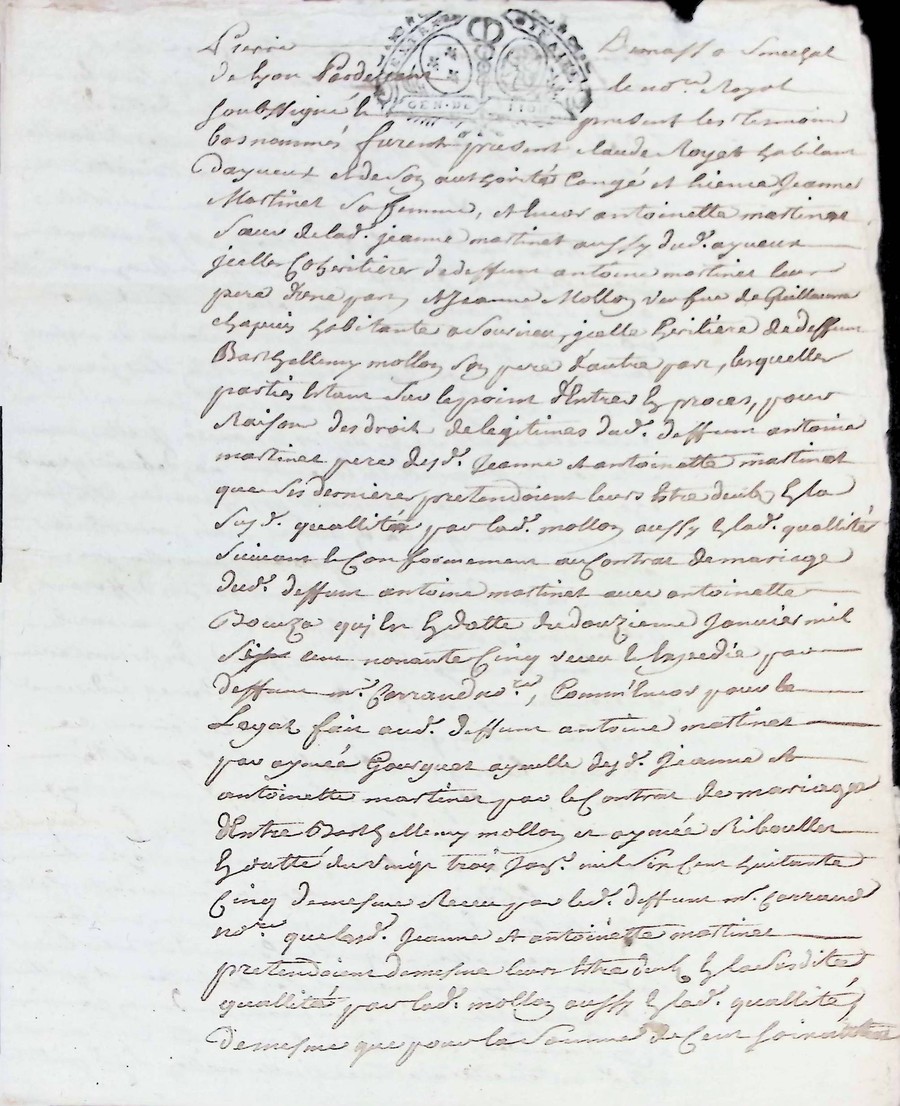 Pierre Benasse Senechal
de Lyon Pardevant le no.re Royal
soubssigné & present les temoins
bas nommés furent present Claude Royat habitant
dayveux et de son authorité Congé et licence Jeanne
Martinet sa femme, et encor antoinette martinet
soeur de lad. jeanne martinet aussy dud. ayveux
jcelles Coheritieres de deffunt antoine martinet leur
pere d'une part, et Jeanne Mollon veufve de Guillaume
chapuis habitante a Sourcieu, jcelle heritiere de deffunt
Barthellemy mollon son pere d'autre part, lesquelles
parties Estant sur le point d'Entrer En proces, pour
Raison des droit de legitimes dud. deffunt antoine
martinet pere desd. Jeanne et antoinette martinet
que ses dernieres pretendoient leurs Estre deub En la
susd. quallités par lad. mollon aussy En lad. quallité
suivant et Conformement au Contrat de mariage
dud. deffunt antoine martinet avec antoinette
Bouza qui Est En datte du douzieme Janvier mil
six cent nonante Cinq receu et Expedié par
deffunt m.e Carrand n.re, Comm'Encor pour le
Legat fait aud. deffunt antoine martinet
par aymée Gourguet ayeulle desd. Jeanne et
antoinette martinet par le Contrat de mariage
d'Entre Barthellemy mollon et aymée Riboullet
En datté du vingt trois Jan.r mil six Cent huitante
Cinq de mesme Receu par led. deffunt m.e Carrand
no.re que lesd. Jeanne et antoinette martinet
pretendoient de mesme leurs Estre deub En la susdites
quallités par lad. mollon aussy En lad. quallité,
de mesme que pour la somme de Cent soixante